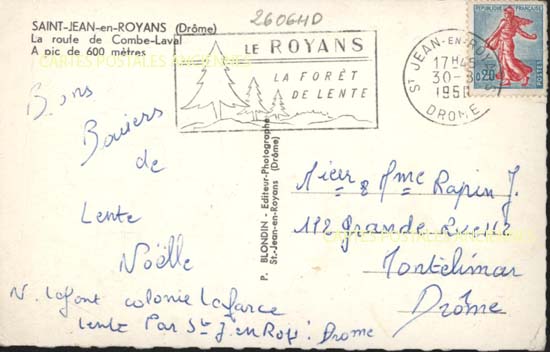 26064D
SAINT-JEAN-en-ROYANS (Drôme)
La route de Combe-Laval
A pic de 600 mètres
CARTES POSTALES ANCIENNES
LE ROYANS
LA FORÊT
DE LENTE
ST JEAN-EN-ROYANS
17H45
30-8
DROME
REPUBLIQUE FRANÇAISE
0,20
POSTES
Bons
Baisers
de
Lente
Noëlle
N. Lafont colonie Lafarge
Lente Par St J. en Roys. Drome
P. BLONDIN - Editeur-Photographe
St.-Jean-en-Royans (Drôme)
Mr et Mme Rapin J.
112 Grande Rue
Montélimar
Drôme
CARTES POSTALES ANCIENNES